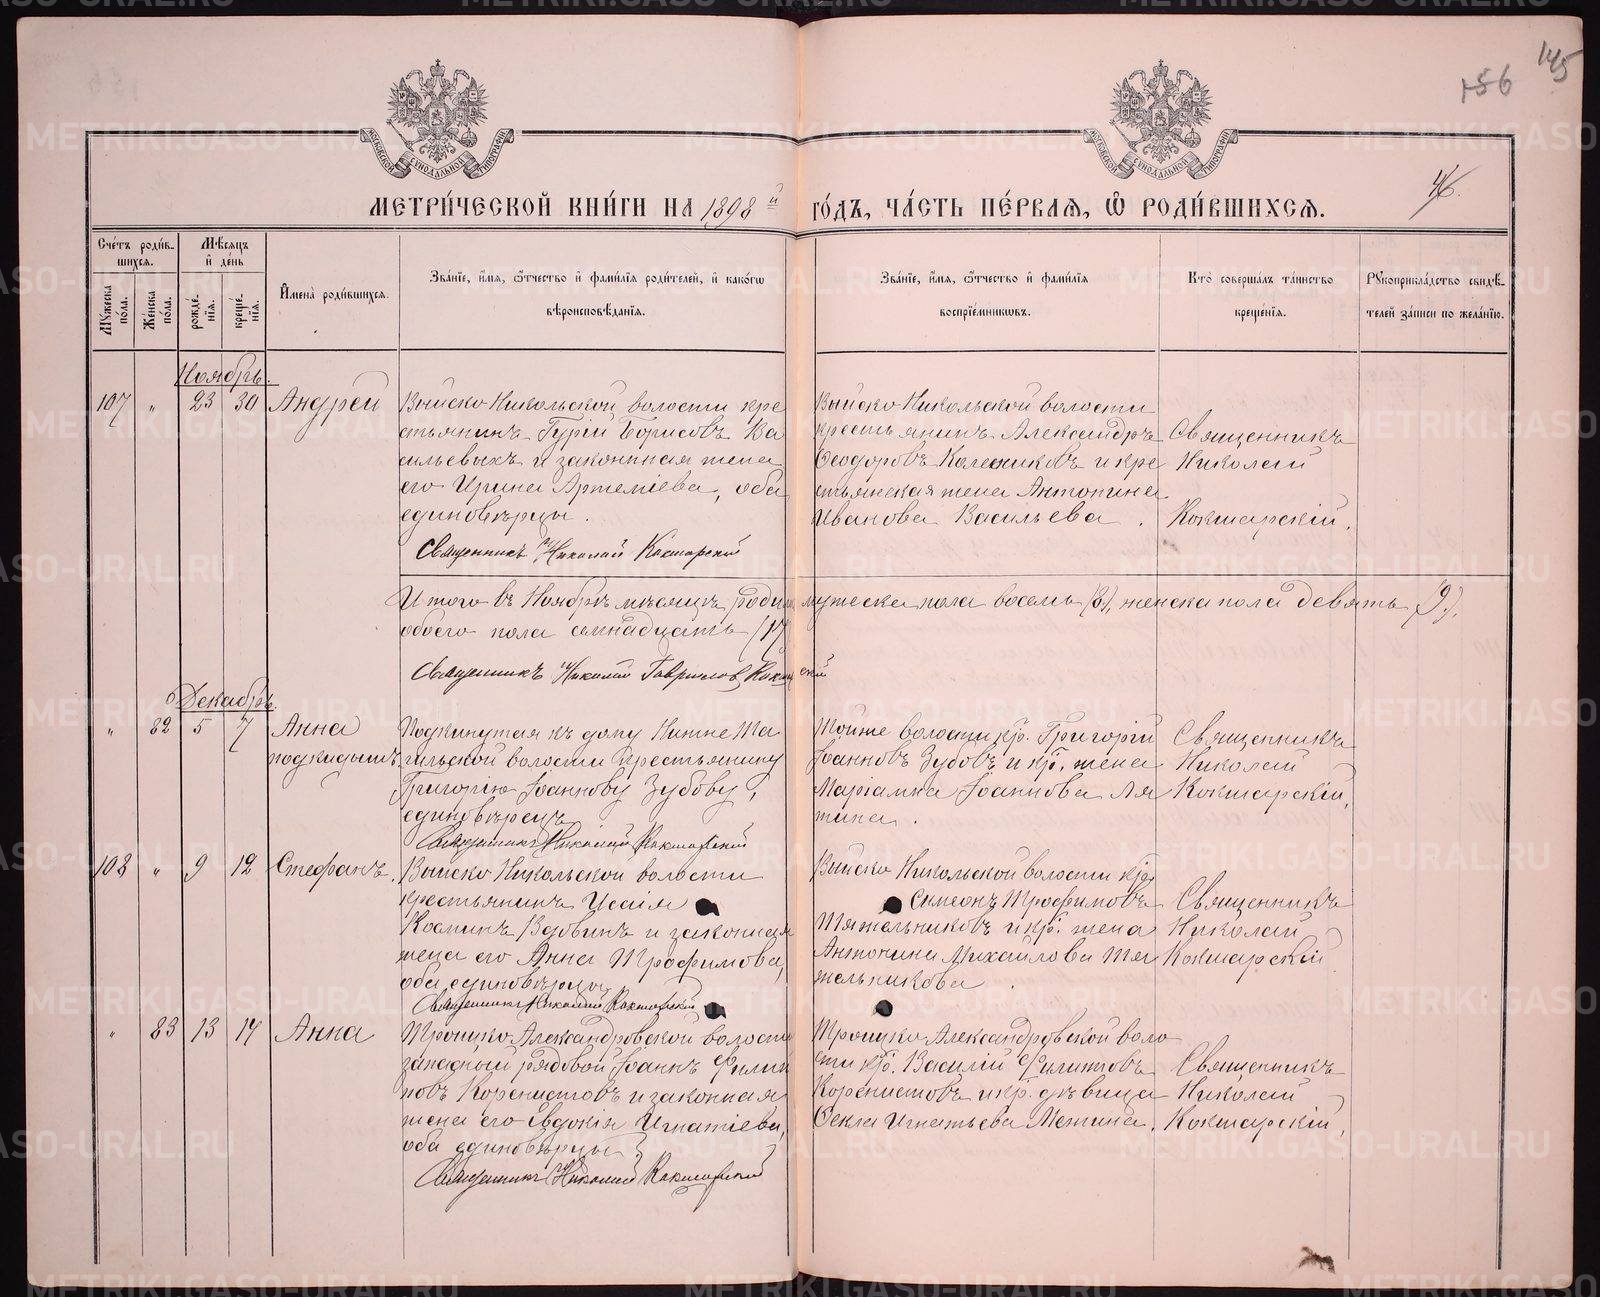 145
156
46.
МЕТРИ́ЧЕСКОЙ КНИ́ГИ НА 1898й ГО́ДЪ, ЧА́СТЬ ПЕ́РВАЯ, Ѡ РОДИ́ВШИХСЯ.
Сче́тъ роди́в-
шихся.
Мѣ́сяцъ
и де́нь
Му́жеска
по́ла.
Же́нска
по́ла.
рожде́-
нія.
креще́-
нія.
И́мена роди́вшихся.
Зва́ніе, и́мя, ѻ́тчество и фами́лія роди́телей, и како́гѡ
вѣроисповѣ́данія.
Зва́ніе, и́мя, ѻ́тчество и фами́лія
воспріе́мникѡвъ.
Кто̀ соверша́лъ та́инство
креще́нія.
Рукоприкла́дство свидѣ́-
телей за́писи по жела́нію.
Ноябрь.
107 " 23 30 Андрей
Выйско Никольской волости кре
стьянинъ Гурій Борисовъ Ва
сильевыхъ и законная жена
его Ирина Артеміева, оба
единовѣрцы.
Священникъ Николай Кокшарскій
Выйско Никольской волости
крестьянинъ Александръ
Ѳеодоровъ Колесниковъ и кре
стьянская жена Антонина
Иванова Васильева.
Священникъ
Николай
Кокшарскій.
Итого въ Ноябрѣ мѣсяцѣ роди мужеска пола восемь (8), женска пола девять (9),
обоего пола семнадцать (17)
Священникъ Николай Гаврилов Кокшарскій
Декабрь.
" 82 5 7 Анна
подкидышъ.
Подкинутая къ дому Нижне Та
гильской волости крестьянину
Григорію Іоаннову Зубову,
единовѣрецъ
Священникъ Николай Кокшарскій
Тойже волости кр. Григорій
Іоанновъ Зубовъ и кр. жена
Маріамна Іоаннова Ля
пина.
Священникъ
Николай
Кокшарскій,
108 " 9 12 Стефанъ.
Выйско Никольской волости
крестьянинъ Исаія
Косминъ Вдовинъ и законная
жена его Анна Трофимова,
оба единовѣрцы
Священникъ Николай Кокшарскій
Выйско Никольской волости кр.
Симеонъ Трофимовъ
Тяжельниковъ и кр. жена
Антонина Михайлова Тя
жельникова.
Священникъ
Николай
Кокшарскій
" 83 13 14 Анна
Троицко Александровской волости
запасный рядовой Іоаннъ Филип
повъ Коренистовъ и законная
жена его Евдокія Игнатіева,
оба единовѣрцы
Священникъ Николай Кокшарскій
Троицко Александровской воло
сти кр. Василій Филиповъ
Коренистовъ и кр. дѣвица
Ѳекла Игнатьева Мехина.
Священникъ
Николай
Кокшарскій,
METRIKI.GASO-URAL.RU